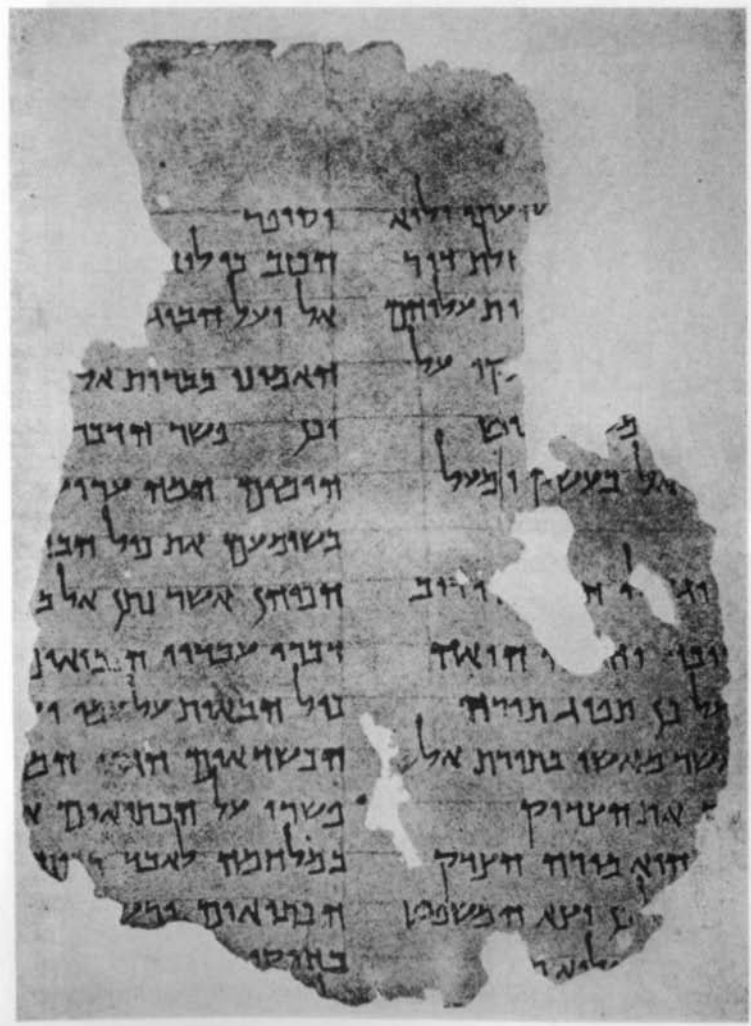 ולוא
דור
ות עליהם
קו על
אל בעשק ומעל
וריב
הואה
על כן תפוג תורה
אשר מאשו בתורת אל
את הצדיק
הוא מורה הצדק
כן יצא המשפט
יסופר
הכזב כי לוא
אל ועל הבוג
האמינו בברית אל
וכן פשר הדבר
הימים המה עריצ
בשומעם את כול הבא
הכוהן אשר נתן אל ב
דברי עבדיו הנביאים
כול הבאות על עמו ו
הכשדאים הגוי המ
פשרו על הכתיאים א
במלחמה לאבד רבים
הכתיאים ורש
בחוקי